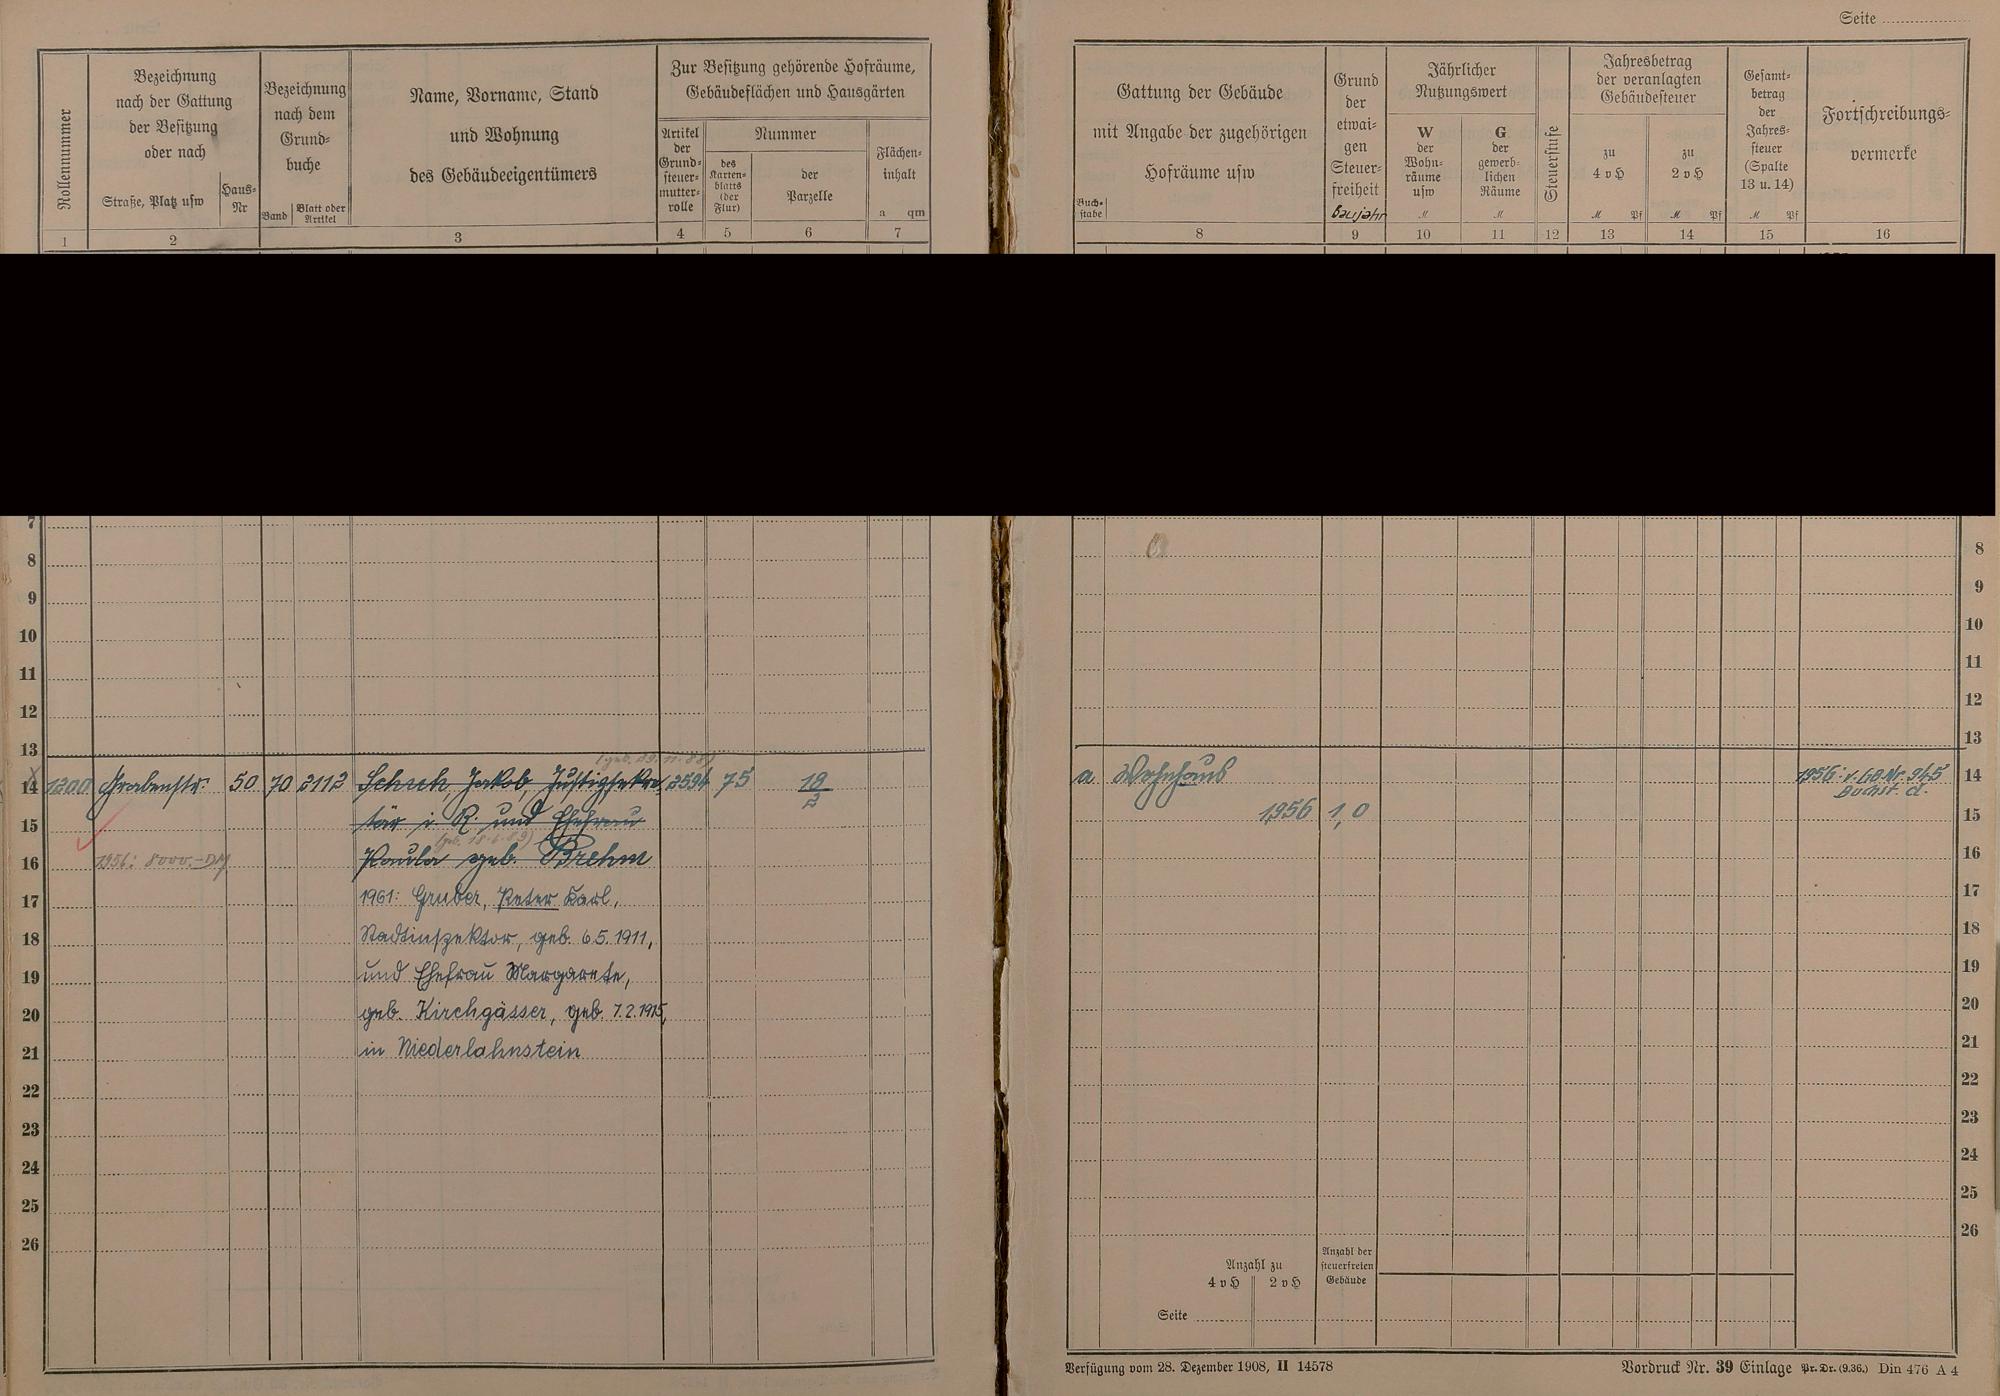 Seite
Rollennummer
Bezeichnung
nach der Gattung
der Besitzung
oder nach
Straße, Platz usw
Haus-
Nr
Bezeichnung
nach dem
Grund-
buche
Band
Blatt oder
Artikel
Name, Vorname, Stand
und Wohnung
des Gebäudeeigentümers
Zur Besitzung gehörende Hofräume,
Gebäudeflächen und Hausgärten
Artikel
der
Grund-
steuer-
mutter-
rolle
Nummer
des
Karten-
blatts
(der
Flur)
der
Parzelle
Flächen-
inhalt
a qm
1 2 3 4 5 6 7
Gattung der Gebäude
mit Angabe der zugehörigen
Hofräume usw
Buch-
stabe
Grund
der
etwai-
gen
Steuer-
freiheit
Baujahr
Jährlicher
Nutzungswert
W
der
Wohn-
räume
usw
M
G
der
gewerb-
lichen
Räume
M
Steuerstufe
Jahresbetrag
der veranlagten
Gebäudesteuer
zu
4 v H
M Pf
zu
2 v H
M Pf
Gesamt-
betrag
der
Jahres-
steuer
(Spalte
13 u. 14)
M Pf
Fortschreibungs-
vermerke
8 9 10 11 12 13 14 15 16
7
8
9
10
11
12
13
14 1200 Grabenstr. 50 70 2112 Schuh, Jakob, Justizsekre- 2594 75
15 tär i. R. und Ehefrau
16 1956: 8000.-DM Paula geb. Brehm
17 1961: Gruber, Peter Karl,
18 Stadtinspektor, geb. 6.5.1911,
19 und Ehefrau Margarete,
20 geb. Kirchgässer, geb. 7.2.1915,
21 in Niederlahnstein
22
23
24
25
26
8
9
10
11
12
13
a Wohnhaus 1956: v. GB Nr. 945 14
Buchst. d.
1956 1,0 15
16
17
18
19
20
21
22
23
24
25
26
Anzahl zu
4 v H 2 v H
Anzahl der
steuerfreien
Gebäude
Seite
Verfügung vom 28. Dezember 1908, II 14578
Vordruck Nr. 39 Einlage Pr. Dr. (9.36.) Din 476 A 4